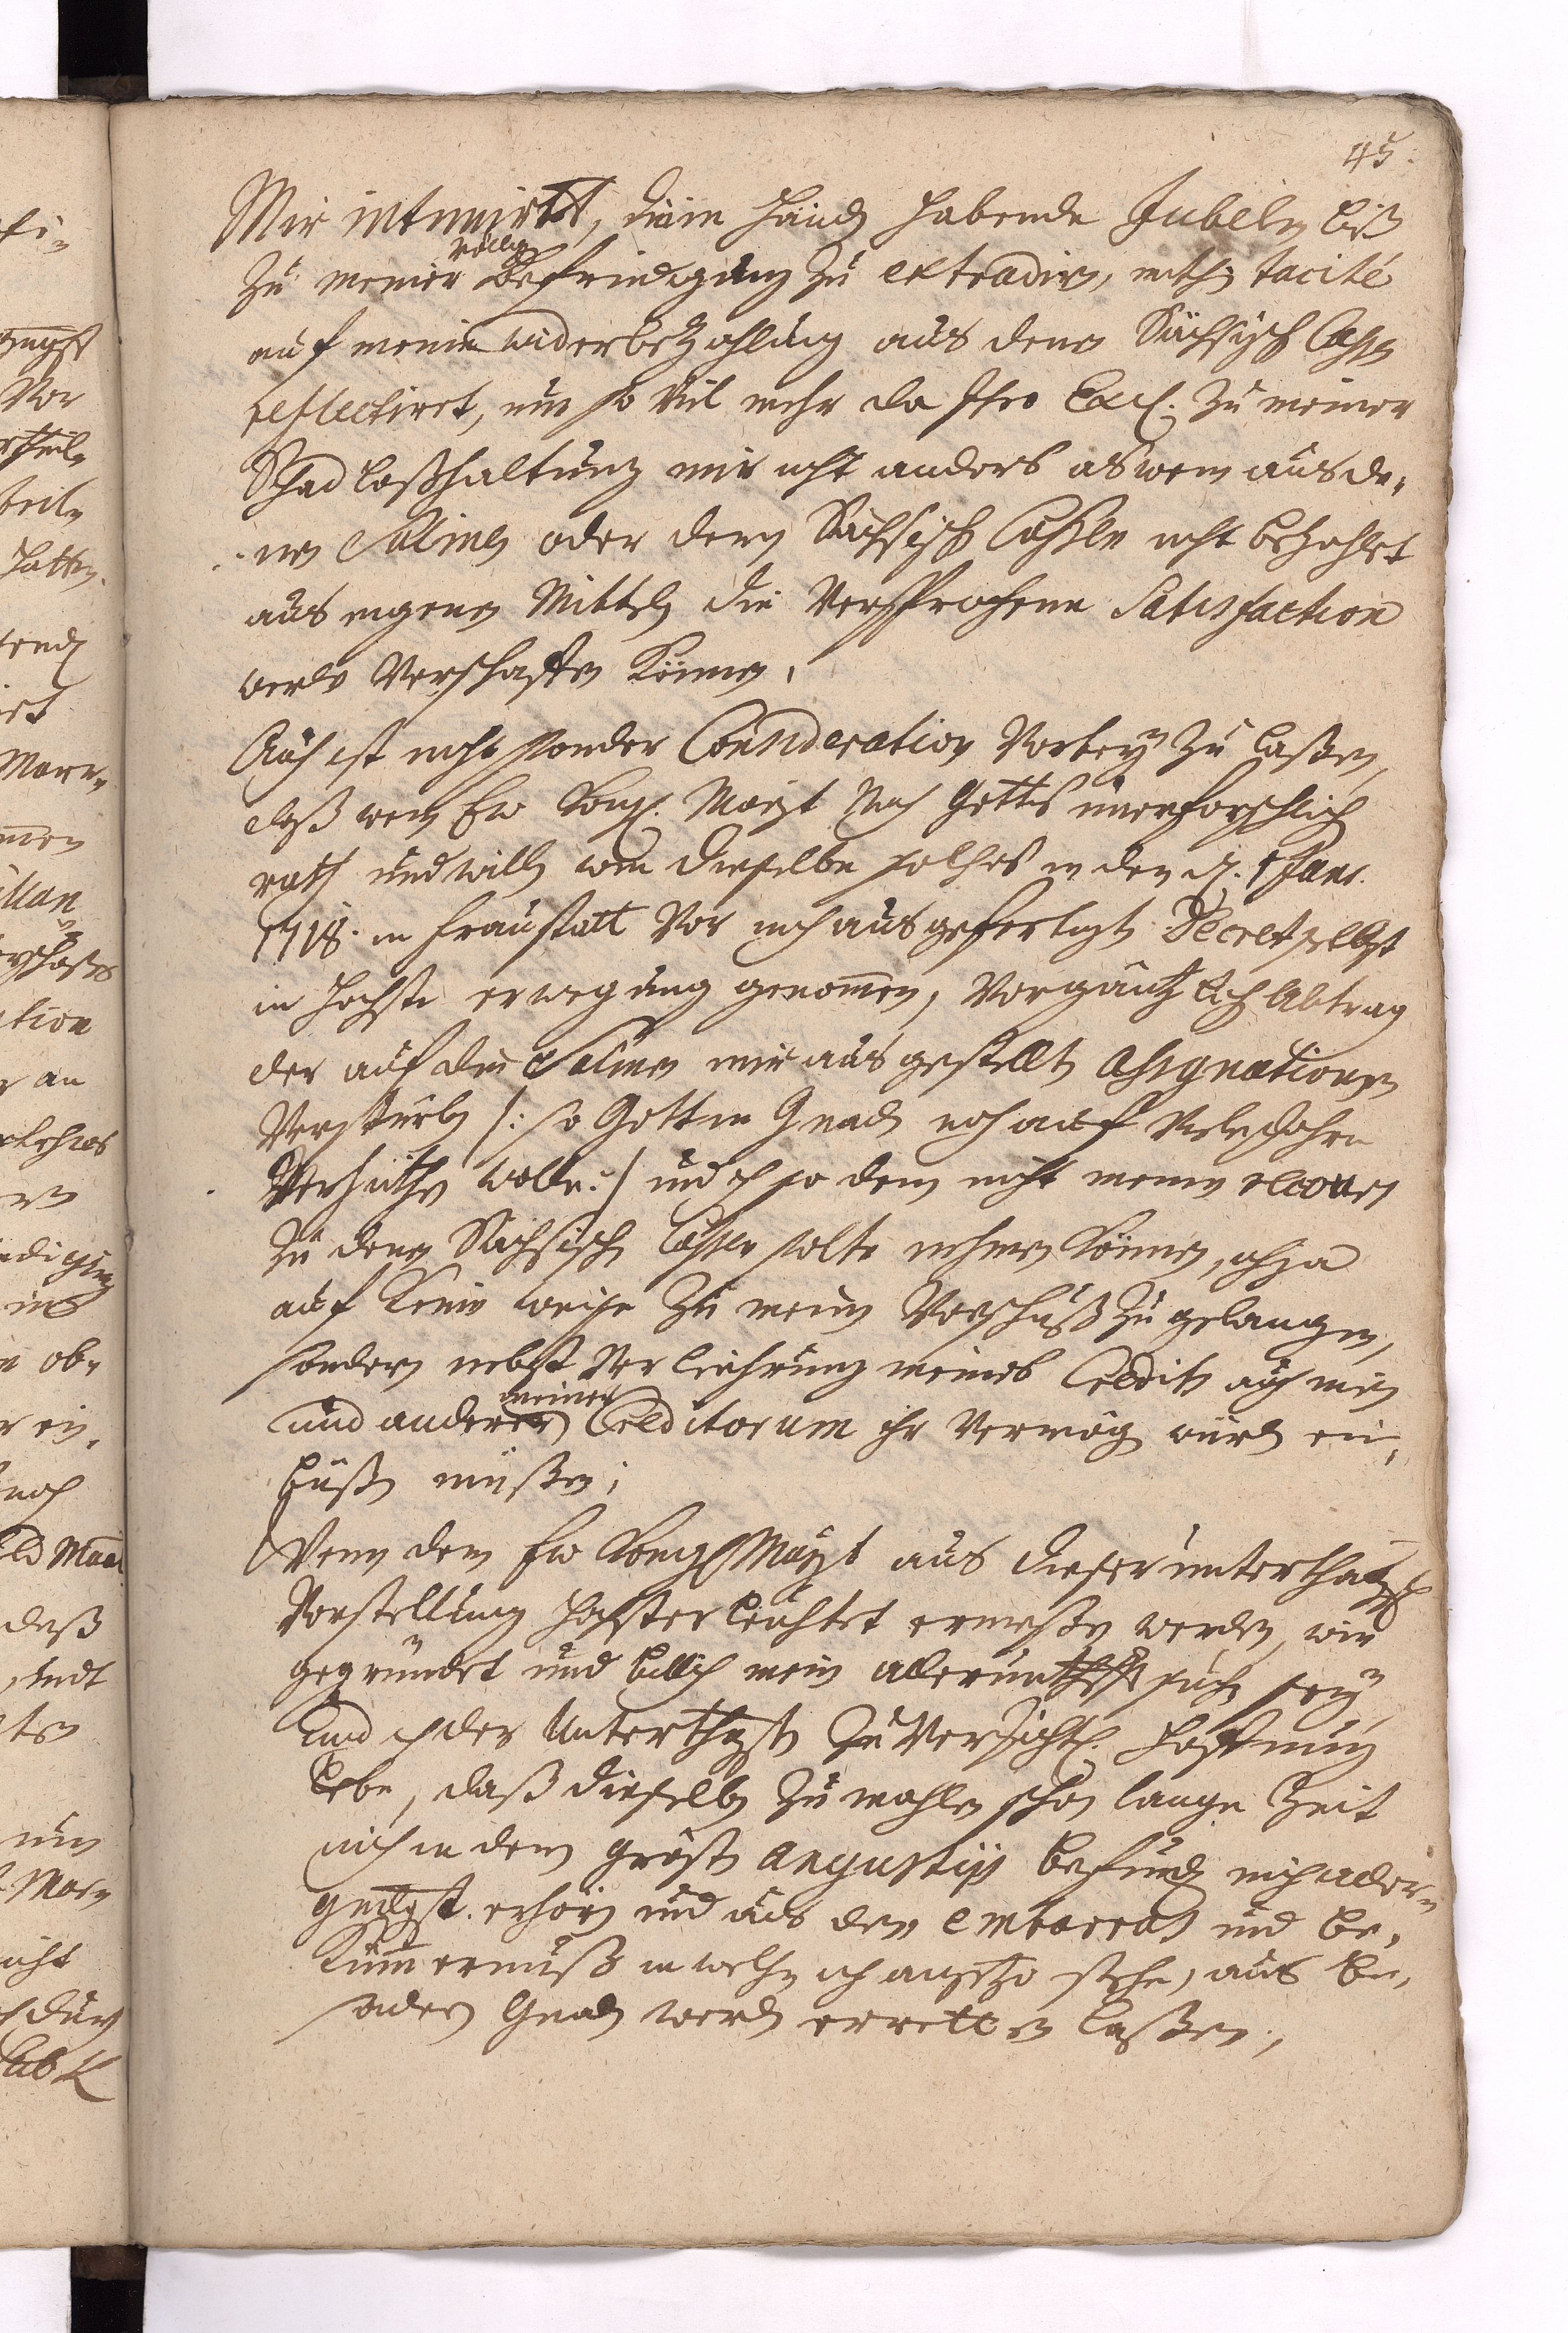 45.
Mir intimirtt, die in Händ habende Jubeln biß
zu meiner völlig Befriedigung zu extradirn, mithin tacité
auf meine widerbezahlung aus denen Sächsisch Cassen
reflectiret, um so viel mehr da Ihro Excel. zu meiner
Schadloßhaltung mir nicht anders als wenn aus de-
nen Salinen oder denen Sächsisch Cassen nicht bezahlet
aus eigenen Mitteln die Versprochene Satisfaction
werde Verschaffen können.
Auch ist nicht sonder Consideration Vorbey zu laßen,
daß wenn Ew Königl. Mayst Nach Gottes unerforschlich
rath und willen wie dieselbe solches in den d. 1 Janr.
1718. in Fraustatt Vor mich ausgefertigten Decret selbst
in hochste erwegung genommen, Vor gäntzlich Abtrag
der auf die Salinen mir ausgestellten Assignationen
Versturben /: so Gott in Gnaden noch auf Viele Jahre
Verhüthen wolle :/ und ich so denn nicht meinen recours
zu denen Sächsischen Cassen solte nehmen können, ich ja
auf keine weise zu meinen Vorschuß zu gelangen,
sondern nebst Verliehrung meines Credits auch mein
und anderer meiner Creditorum ihr Vermögen würde ein-
büßen müßen;
Wenn denn Ew Königl Mayst aus dieser unterthänigst
Vorstellung hochsterleuchtet ermeßen werden, wie
gegründet und billich mein allerunterthst suchen sey,
und ich der Unterthgsten Zuversichtl. Hoffnung
lebe, daß dieselben zumahlen schon lange Zeit
mich in denen grösten angustiis befinde, mich aller-
gndgst. erhören und aus den embarras und be-
kümmernuß in welchen ich anjetzo stehe, aus be-
sondern Gnaden werden erretten laßen,